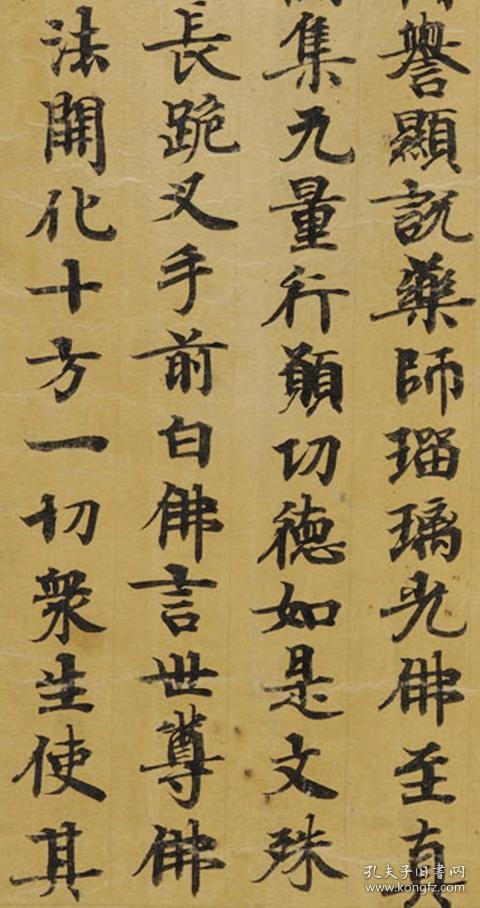 譽顯説藥師瑠璃光佛至真
集无量行願功德如是文殊
長跪叉手前白佛言世尊佛
法開化十方一切衆生使其
孔夫子旧书网
www.kongfz.com